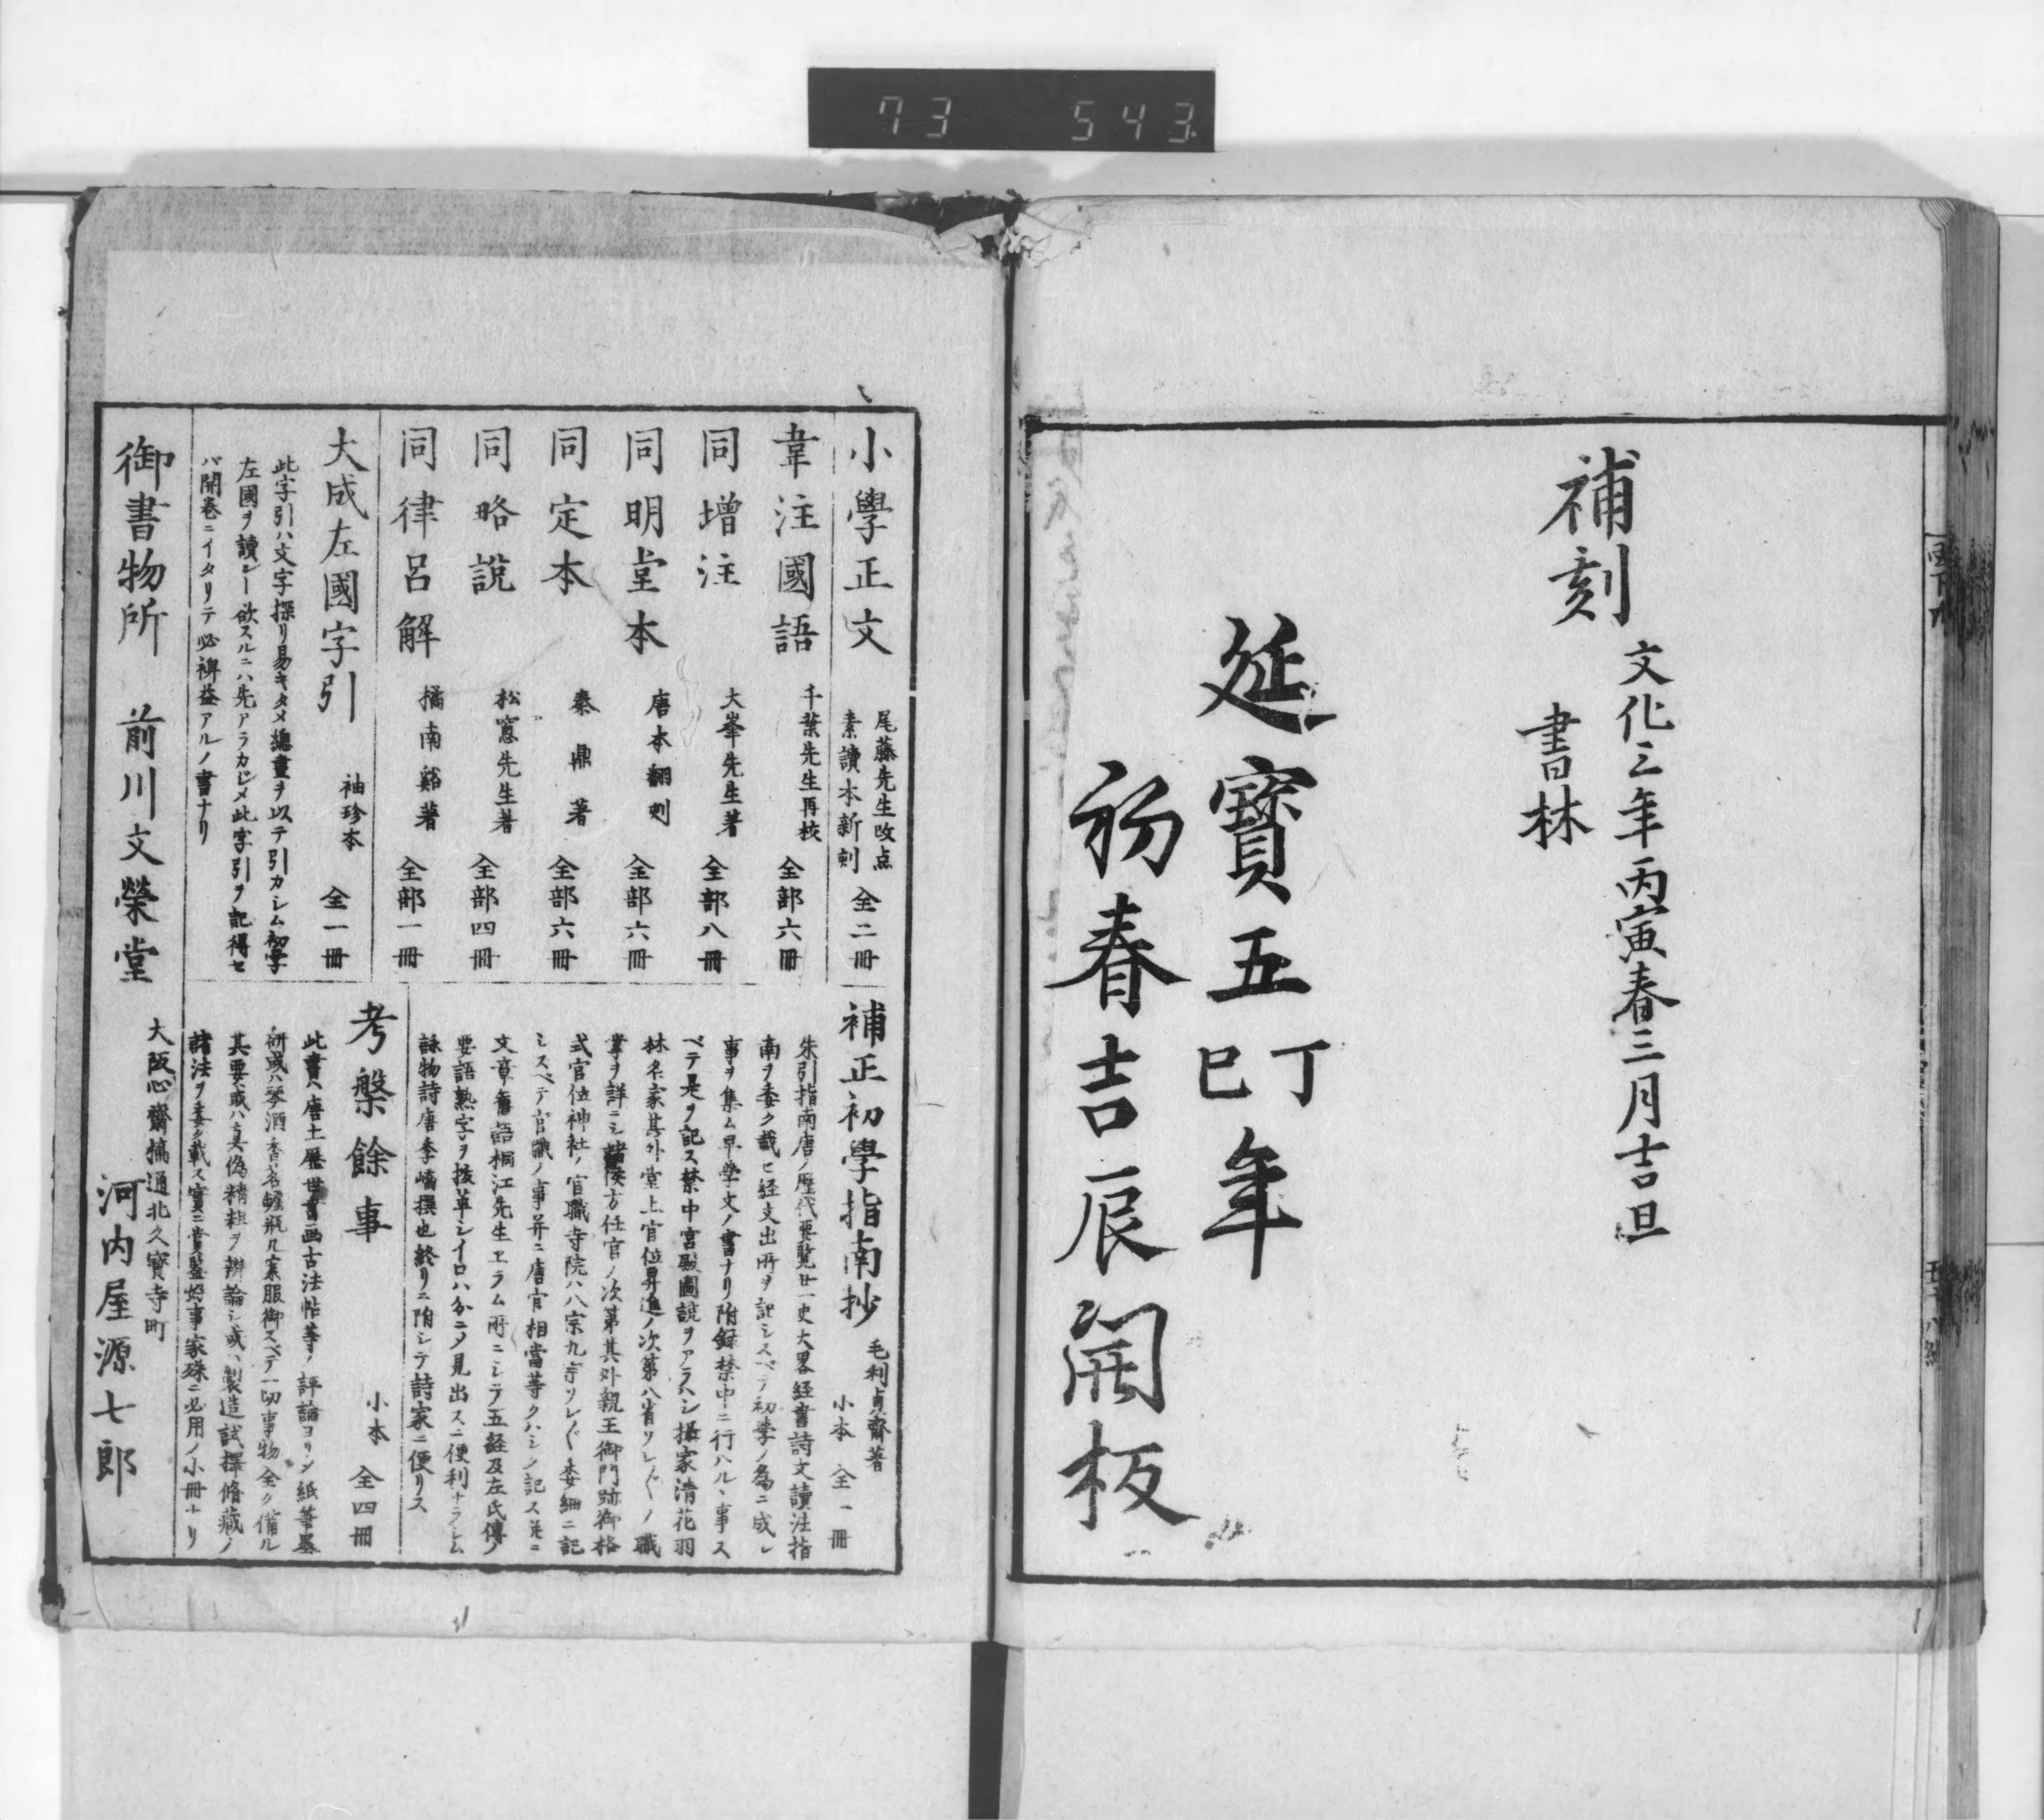 73 543
補刻
文化三年丙寅春三月吉旦
書林
延寳五丁巳年
初春吉辰開板
小學正文 尾藤先生改点 素讀本新刻 全二冊
韋注國語 千葉先生再校 全部六冊
同増注 大峯先生著 全部八冊
同明堂本 唐本翻刻 全部六冊
同定本 秦鼎著 全部六冊
同略説 松窓先生著 全部四冊
同律呂解 橘南谿著 全部一冊
大成左國字引 袖珍本 全一冊
此字引ハ文字探リ易キタメ總畫ヲ以テ引カシム初学
左國ヲ讀ント欲スルニハ先アラカジメ此字引ヲ記得セ
バ開巻ニイタリテ必裨益アルノ書ナリ
補正初學指南抄 毛利貞齋著 小本 全一冊
朱引指南唐ノ歴代要覧廿一史大畧経書詩文讀法指
南ヲ委ク載セ経文出所ヲ記シスベテ初学ノ為ニ成レ
事ヲ集ム早学文ノ書ナリ附録禁中ニ行ハルヽ事ス
ベテ是ヲ記ス禁中宮殿圖説ヲアラハシ攝家清花羽
林名家其外堂上官位昇進ノ次第八省ソレ〱ノ職
掌ヲ詳ニシ諸侯方任官ノ次第其外親王御門跡御格
式官位神社ノ官職寺院ハ八宗九宗ソレ〱委細ニ記
シスベテ官職ノ事并ニ唐官相當等クハシク記ス
文章舊語桐江先生エラム所ニシテ五経及左氏傳ノ
要語熟字ヲ抜萃シイロハ分ニメ見出スニ便利ナラシム
詠物詩唐李嶠撰也終リニ附シテ詩家ニ便リス
考槃餘事 小本 全四冊
此書ハ唐土歴世書画古法帖等ノ評論ヨリシ紙筆墨
研或ハ琴酒香茗鑪瓶几案服御スベテ一切事物全ク備ル
其要或ハ真偽精粗ヲ辨論シ或ハ製造試擇脩蔵ノ
諸法ヲ委ク載ス實ニ賞鑒好事家殊ニ必用ノ小冊ナリ
御書物所 前川文榮堂 大阪心齋橋通北久寳寺町 河内屋源七郎